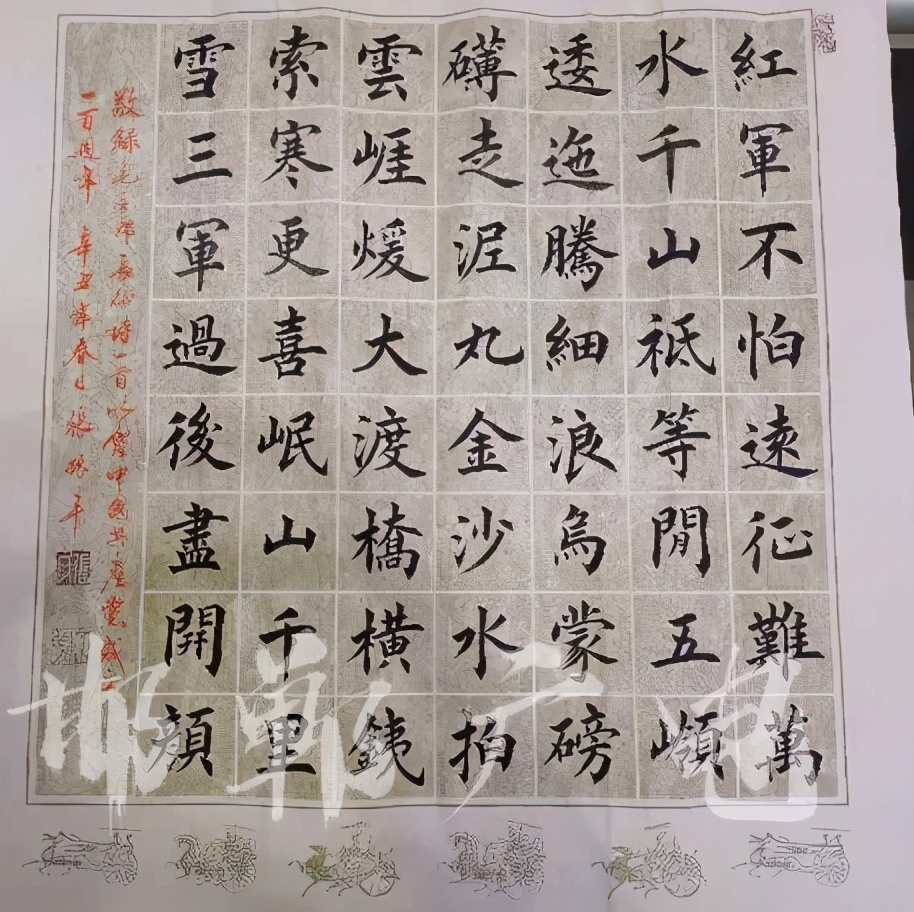 紅軍不怕遠征難萬
水千山祗等閒五嶺
逶迤騰細浪烏蒙磅
礴走泥丸金沙水拍
雲崕煖大渡橋横銕
索寒更喜岷山千里
雪三軍過後盡開顔
敬録毛主席長征詩一首以慶中國共產黨成立
一百週年 辛丑年春日 張
邯郸广电